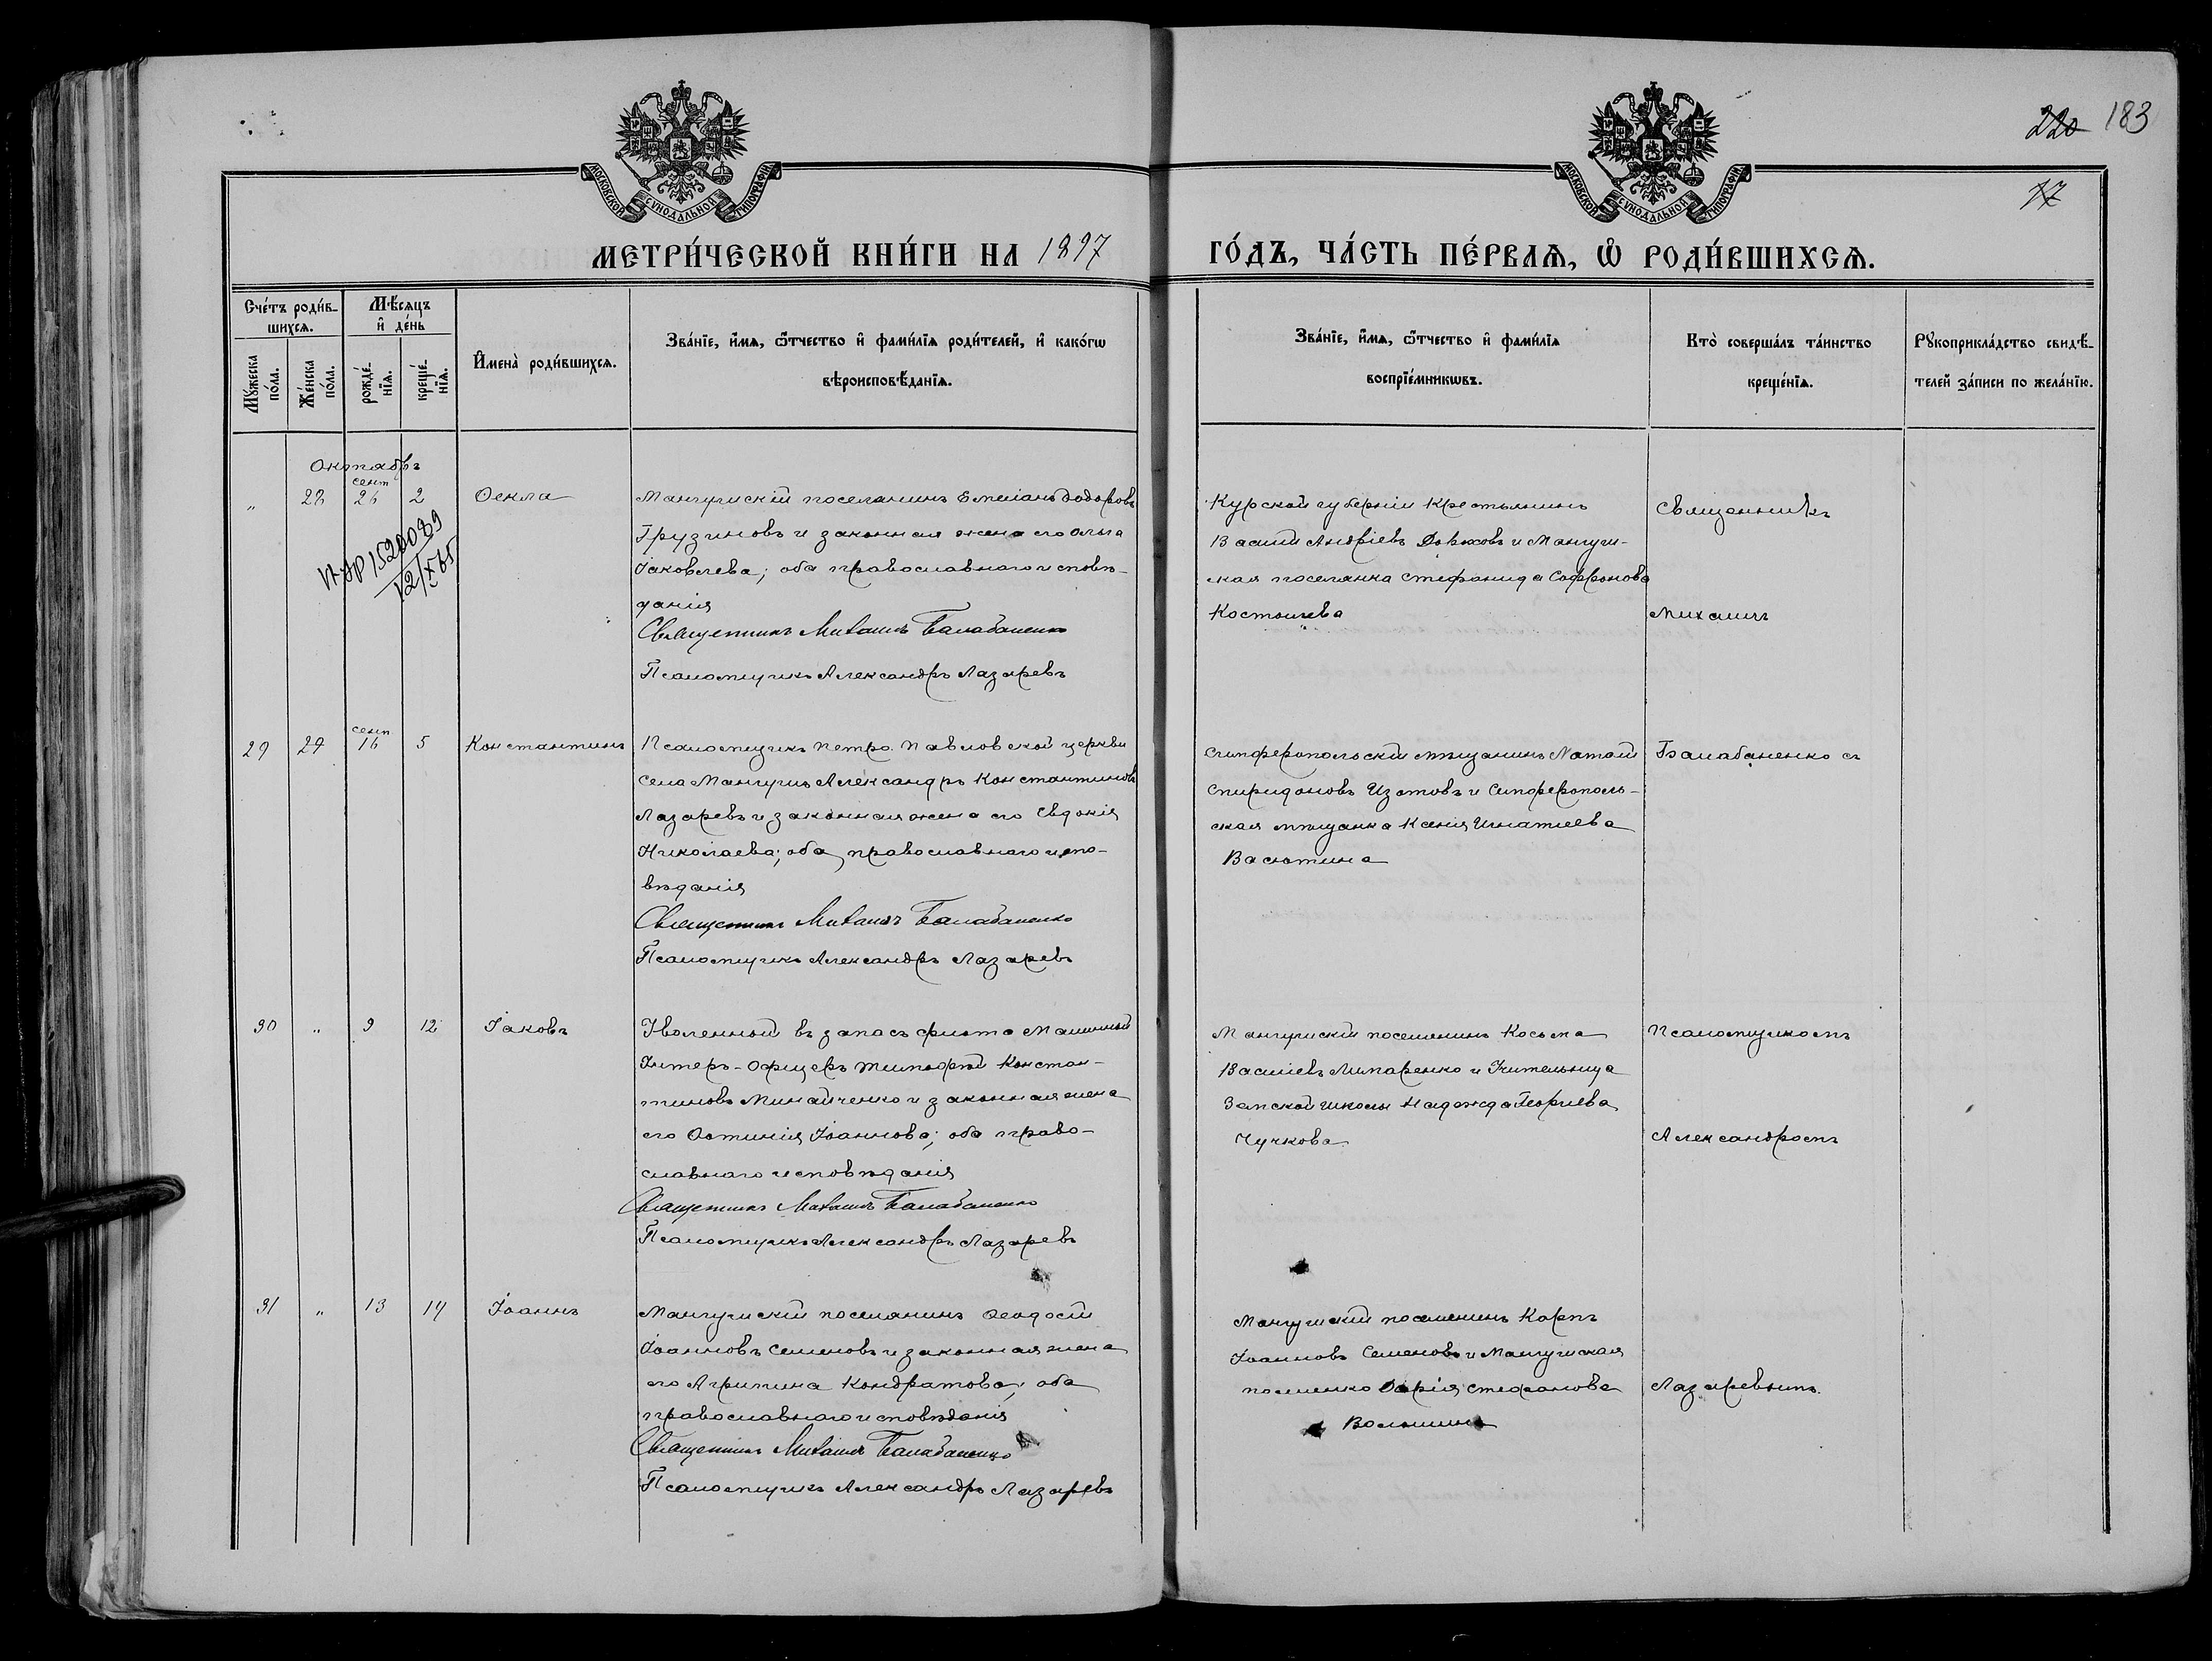 220 183
17
МОСКОВСКОЙ СѴНОДАЛЬНОЙ ТИПОГРАФІИ
МОСКОВСКОЙ СѴНОДАЛЬНОЙ ТИПОГРАФІИ
МЕТРИ́ЧЕСКОЙ КНИ́ГИ НА 1897
ГО́ДЪ, ЧА́СТЬ ПЕ́РВАѦ, Ѽ РОДИ́ВШИХСѦ.
Сче́тъ роди́в-
шихсѧ.
Мѣ́сѧцъ
и҆ де́нь
Мꙋ́жеска по́ла.
Же́нска по́ла.
рожде́-нїѧ.
креще́-нїѧ.
И҆мена̀ роди́вшихсѧ.
Зва́нїе, и҆́мѧ, ѻ҆́тчество и҆ фами́лїѧ роди́телей, и҆ како́гѡ
вѣроисповѣ́данїѧ.
Зва́нїе, и҆́мѧ, ѻ҆́тчество и҆ фами́лїѧ
воспрїе́мникѡвъ.
Кто̀ соверша́лъ та́инство
креще́нїѧ.
Рꙋкоприкла́дство свидѣ́-
телей за́писи по жела́нїю.
Октябрь
сент
" 28 26 2 Ѳекла
12/X 65
Мангушскій поселянинъ Емиліанъ Ѳодоровъ
Грузиновъ и законная жена его Ольга
Іаковлева; оба православнаго исповѣ-
данія
Священникъ Михаилъ Балабаненко
Псаломщикъ Александръ Лазаревъ
Курской губерніи Крестьянинъ
Василій Андріевъ и Мангуш-
ская поселянка Стефанида Софронова
Костычева
Священникъ
Михаилъ
сент
29 29 16 5 Константинъ
Псаломщикъ Петро-Павловской церкви
села Мангушъ Александръ Константиновъ
Лазаревъ и законная жена его Евдокія
Николаева; оба православнаго испо-
вѣданія
Священникъ Михаилъ Балабаненко
Псаломщикъ Александръ Лазаревъ
Симферопольскій мѣщанинъ
Спиридоновъ Изотовъ и Симферополь-
ская мѣщанка Ксенія Игнатіева
Васютина
Балабаненко съ
30 " 9 12 Іаковъ
Уволенный въ запасъ флота Машинный
Унтеръ-Офицеръ Тимофей Констан-
тиновъ Минайченко и законная жена
его Іоаннова; оба право-
славнаго исповѣданія
Священникъ Михаилъ Балабаненко
Псаломщикъ Александръ Лазаревъ
Мангушскій поселянинъ Косьма
Василіевъ Липаренко и Учительница
Земской школы Надежда Георгіева
Чучкова
Псаломщикомъ
Александромъ
31 " 13 14 Іоаннъ
Мангушскій поселянинъ Ѳеодосій
Іоанновъ Семеновъ и законная жена
его Агрипина Кондратова; оба
православнаго исповѣданія
Священникъ Михаилъ Балабаненко
Псаломщикъ Александръ Лазаревъ
Мангушскій поселянинъ Карпъ
Іоанновъ Семеновъ и Мангушская
поселянка Дарія Стефанова
Лазаревымъ.